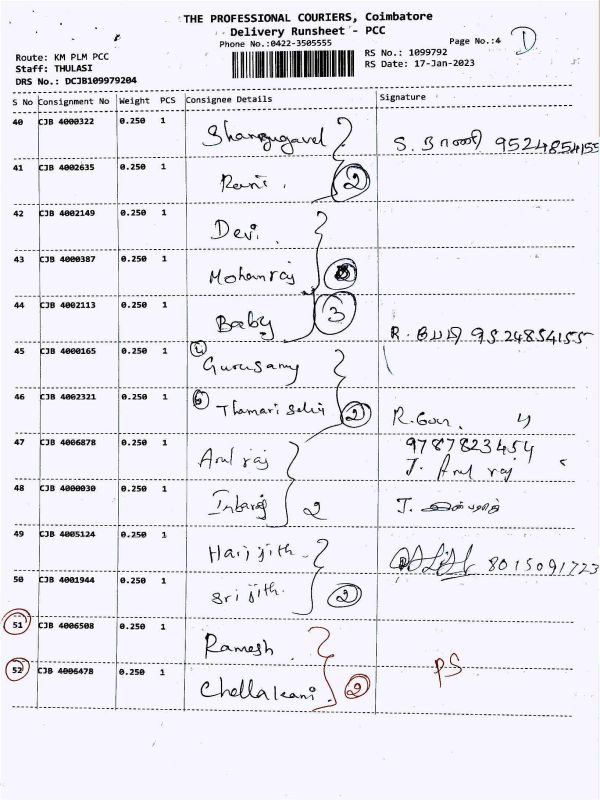 THE PROFESSIONAL COURIERS, Coimbatore
Delivery Runsheet - PCC
Phone No.:0422-3505555
Page No.:4
D
Route: KM PLM PCC
RS No.: 1099792
Staff: THULASI
RS Date: 17-Jan-2023
DRS No.: DCJB109979204
S No Consignment No Weight PCS Consignee Details Signature
40 CJB 4000322 0.250 1 Shanmugavel S. ராணி 9524854155
41 CJB 4002635 0.250 1 Rani. 2
42 CJB 4002149 0.250 1 Devi
43 CJB 4000387 0.250 1 Mohanraj
44 CJB 4002113 0.250 1 Baby 3 R. பேபி 9524854155
45 CJB 4000165 0.250 1 Gurusamy
46 CJB 4002321 0.250 1 Thamari Selvi 2 R.
47 CJB 4006878 0.250 1 Arul raj 9787823454
J. Arul raj
48 CJB 4000030 0.250 1 Inbaraj 2 J. இன்பராஜ்
49 CJB 4005124 0.250 1 Harijith 8015091723
50 CJB 4001944 0.250 1 Srijith. 2
51 CJB 4006508 0.250 1 Ramesh
52 CJB 4006478 0.250 1 Chellakani 2 PS